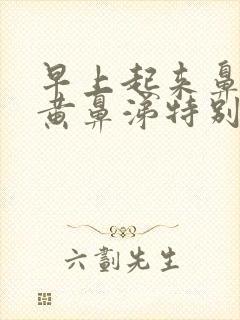 早上起来鼻
黄鼻涕特别
六劃先生